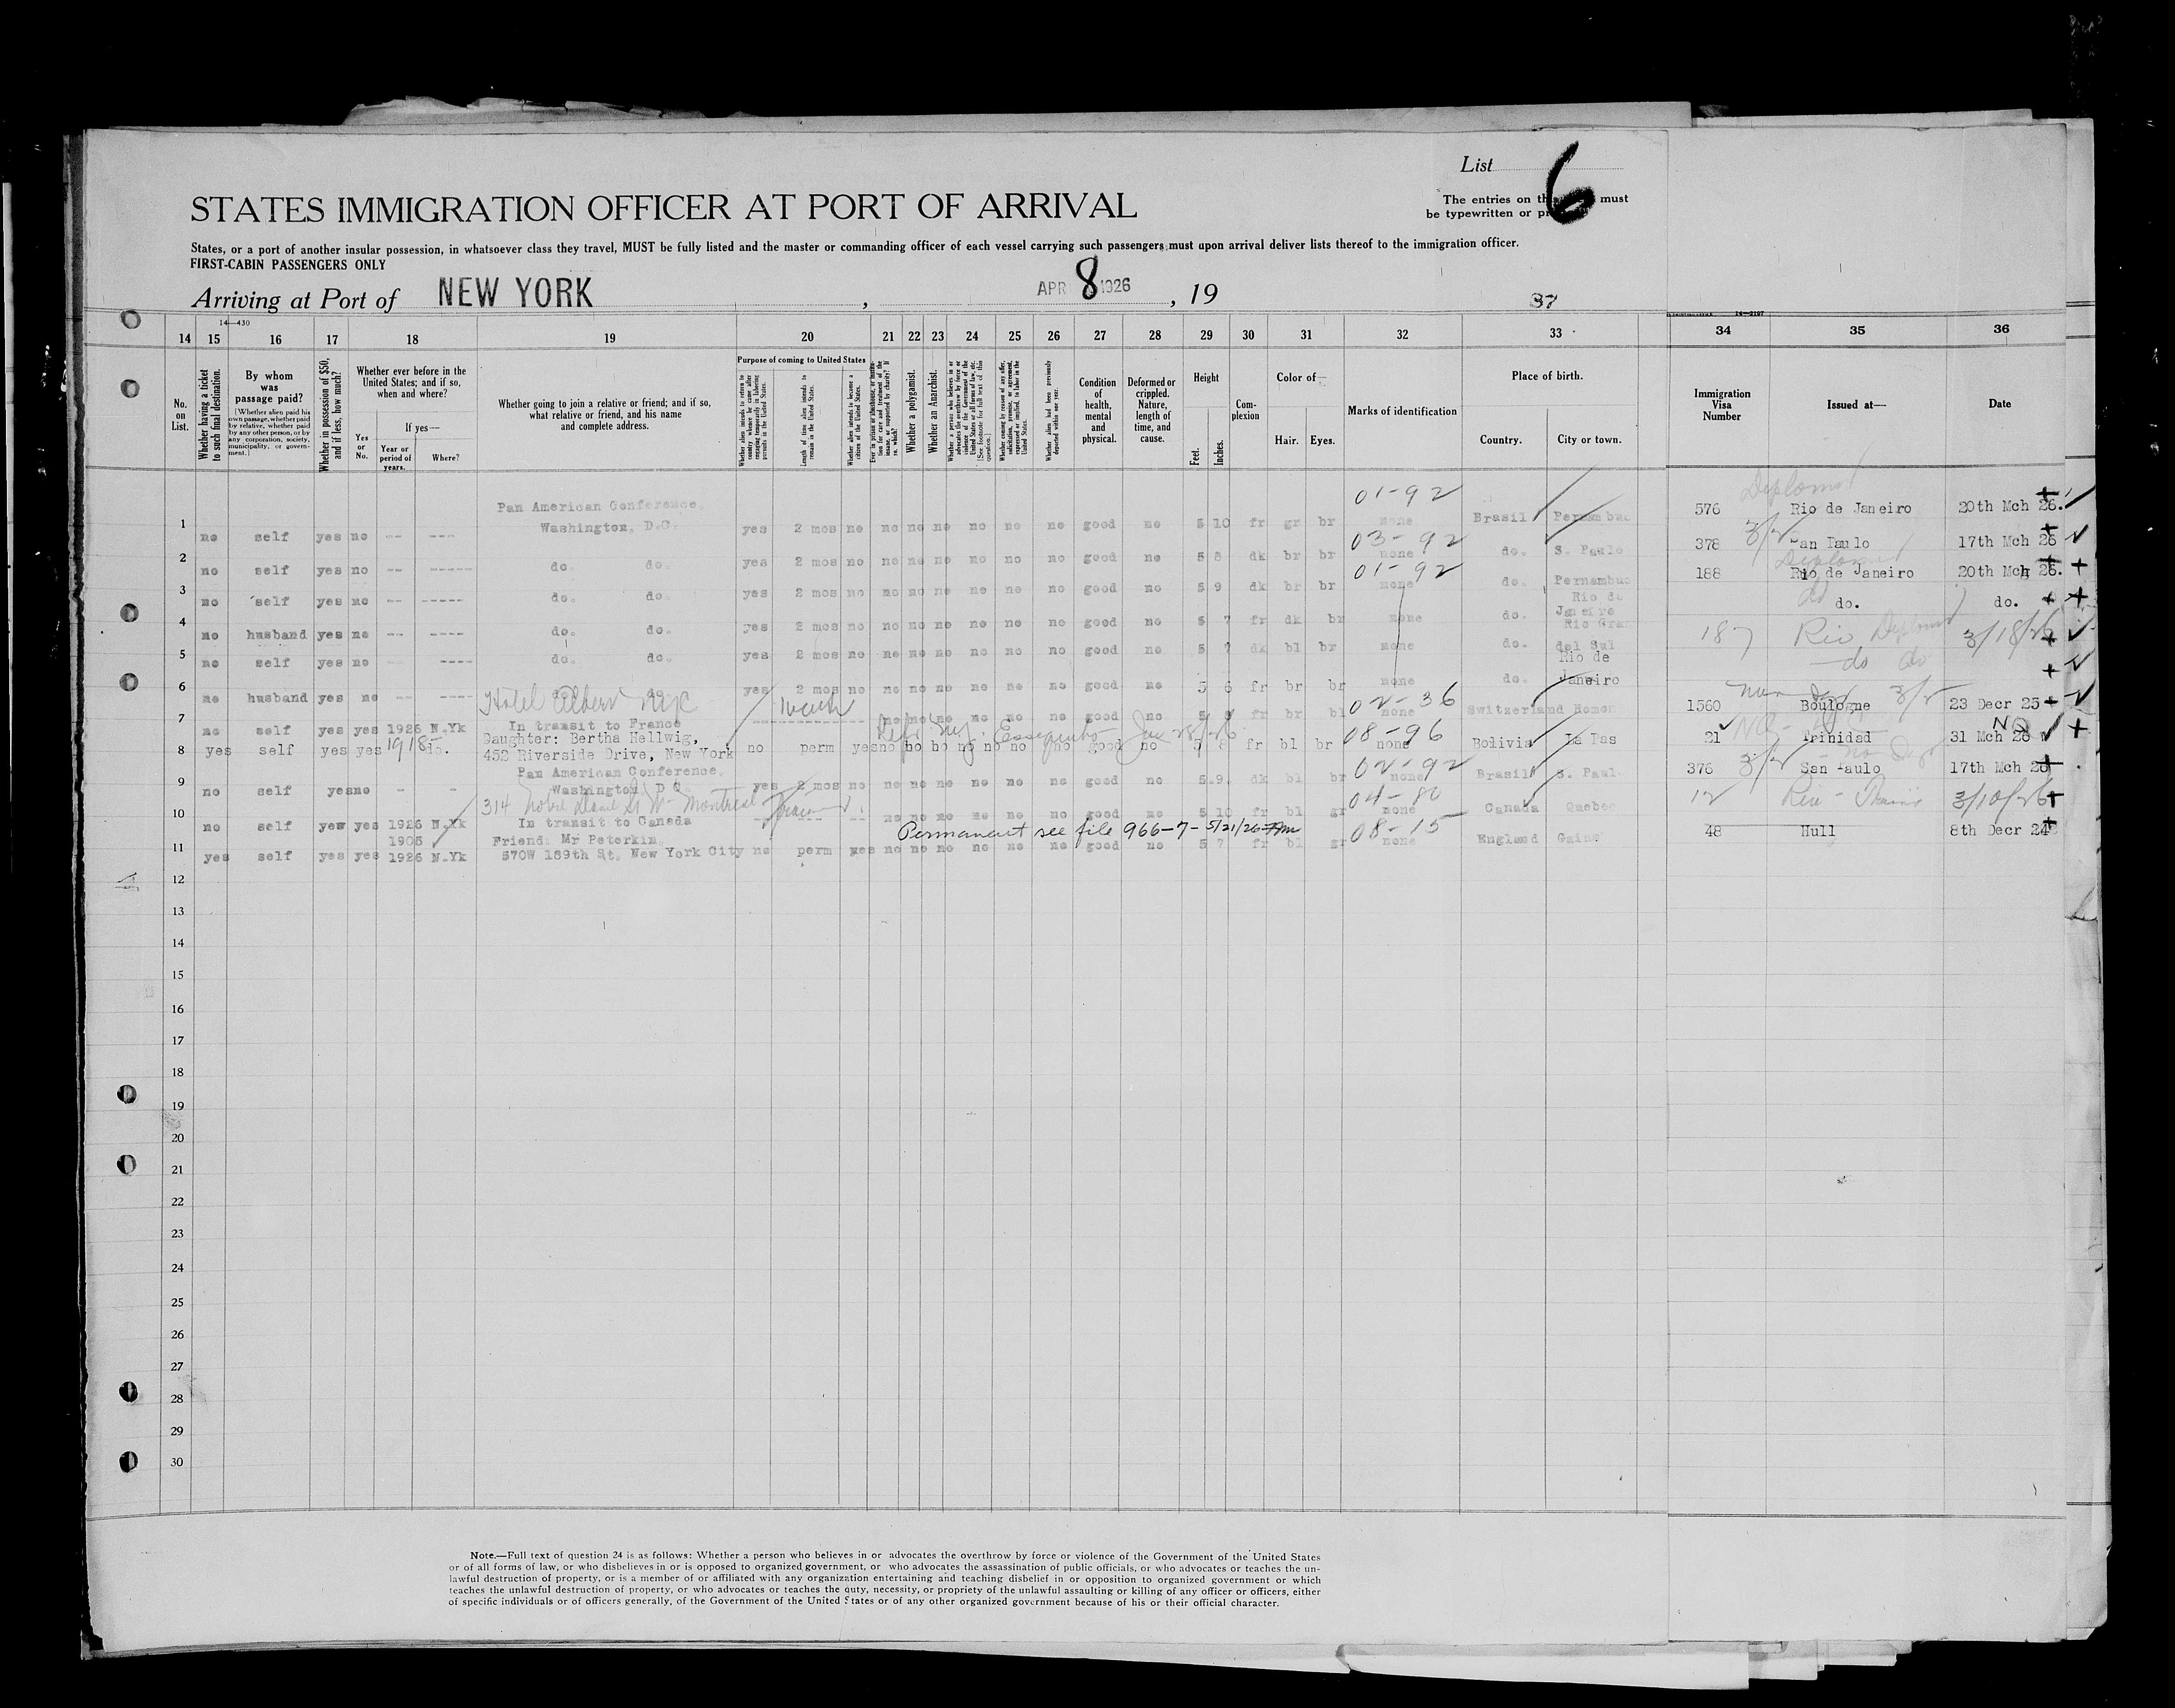 List 6
STATES IMMIGRATION OFFICER AT PORT OF ARRIVAL
The entries on this must
be typewritten or pr
States, or a port of another insular possession, in whatsoever class they travel, MUST be fully listed and the master or commanding officer of each vessel carrying such passengers must upon arrival deliver lists thereof to the immigration officer.
FIRST-CABIN PASSENGERS ONLY
Arriving at Port of NEW YORK, APR 8 1926, 19
37
14—430
14 15 16 17 18 19 20 21 22 23 24 25 26 27 28 29 30 31 32 33 34 35 36
No. on List.
Whether having a ticket to such final destination.
By whom was passage paid?
[Whether alien paid his own passage, whether paid by relative, whether paid by any other person, or by any corporation, society, municipality, or government.]
Whether in possession of $50, and if less, how much?
Whether ever before in the United States; and if so, when and where?
If yes—
Yes or No.
Year or period of years.
Where?
Whether going to join a relative or friend; and if so, what relative or friend, and his name and complete address.
Purpose of coming to United States
Length of time alien intends to remain in the United States.
Whether alien intends to become a citizen of the United States.
Whether a polygamist.
Whether an Anarchist.
Condition of health, mental and physical.
Deformed or crippled. Nature, length of time, and cause.
Height
Feet. Inches.
Complexion
Color of—
Hair. Eyes.
Marks of identification
Place of birth.
Country. City or town.
Immigration Visa Number
Issued at—
Date
Pan American Conference,
01-92
1 no self yes no -- --- Washington, D.C. yes 2 mos no no no no no no no good no 5 10 fr gr br none Brasil Pernambuc 576 Rio de Janeiro 20th Mch 26.
03-92
2 no self yes no -- ----- do. do. yes 2 mos no no no no no no no good no 5 8 dk br br none do. S. Paulo 378 San Paulo 17th Mch 26
01-92
3 no self yes no -- ----- do. do. yes 2 mos no no no no no no no good no 5 9 dk br br none do. Pernambuc 188 Rio de Janeiro 20th Mch 26.
4 no husband yes no -- ---- do. do. yes 2 mos no no no no no no no good no 5 7 fr dk br none do. Rio de Janeiro do. do.
5 no self yes no -- ---- do. do. yes 2 mos no no no no no no no good no 5 7 dk bl br none do. Rio Gran del Sul 187 Rio 3/18/26
6 no husband yes no -- ---- do. do. yes 2 mos no no no no no no no good no 5 6 fr br br none do. Rio de Janeiro do do
Hotel Albert NYC
02-36
7 no self yes yes 1926 N.Yk In transit to France no no no no no no good no 5 fr br bl none Switzerland Romon 1560 Boulogne 23 Decr 25
1918
08-96
8 yes self yes yes do. Daughter: Bertha Hellwig,
452 Riverside Drive, New York no perm yes no no no no no no no good no 5 8 fr bl br none Bolivia La Pas 21 Trinidad 31 Mch 26
Pan American Conference,
02-92
9 no self yes no - - Washington D C. yes 2 mos no no no no no no no good no 5 9 dk bl br none Brasil S. Paul 376 San Paulo 17th Mch 26
04-80
10 no self yes yes 1926 N.Yk In transit to Canada no no no no no no good no 5 10 fr bl gr none Canada Quebec 12 Rio 3/10/26
Permanent see file 966-7- 5/21/26
08-15
1905 Friend: Mr Peterkin,
11 yes self yes yes 1926 N.Yk 570W 189th St. New York City no perm yes no no no no no no good no 5 7 fr bl gr none England Gains 48 Hull 8th Decr 24
12
13
14
15
16
17
18
19
20
21
22
23
24
25
26
27
28
29
30
Note.—Full text of question 24 is as follows: Whether a person who believes in or advocates the overthrow by force or violence of the Government of the United States
or of all forms of law, or who disbelieves in or is opposed to organized government, or who advocates the assassination of public officials, or who advocates or teaches the un-
lawful destruction of property, or is a member of or affiliated with any organization entertaining and teaching disbelief in or opposition to organized government or which
teaches the unlawful destruction of property, or who advocates or teaches the duty, necessity, or propriety of the unlawful assaulting or killing of any officer or officers, either
of specific individuals or of officers generally, of the Government of the United States or of any other organized government because of his or their official character.